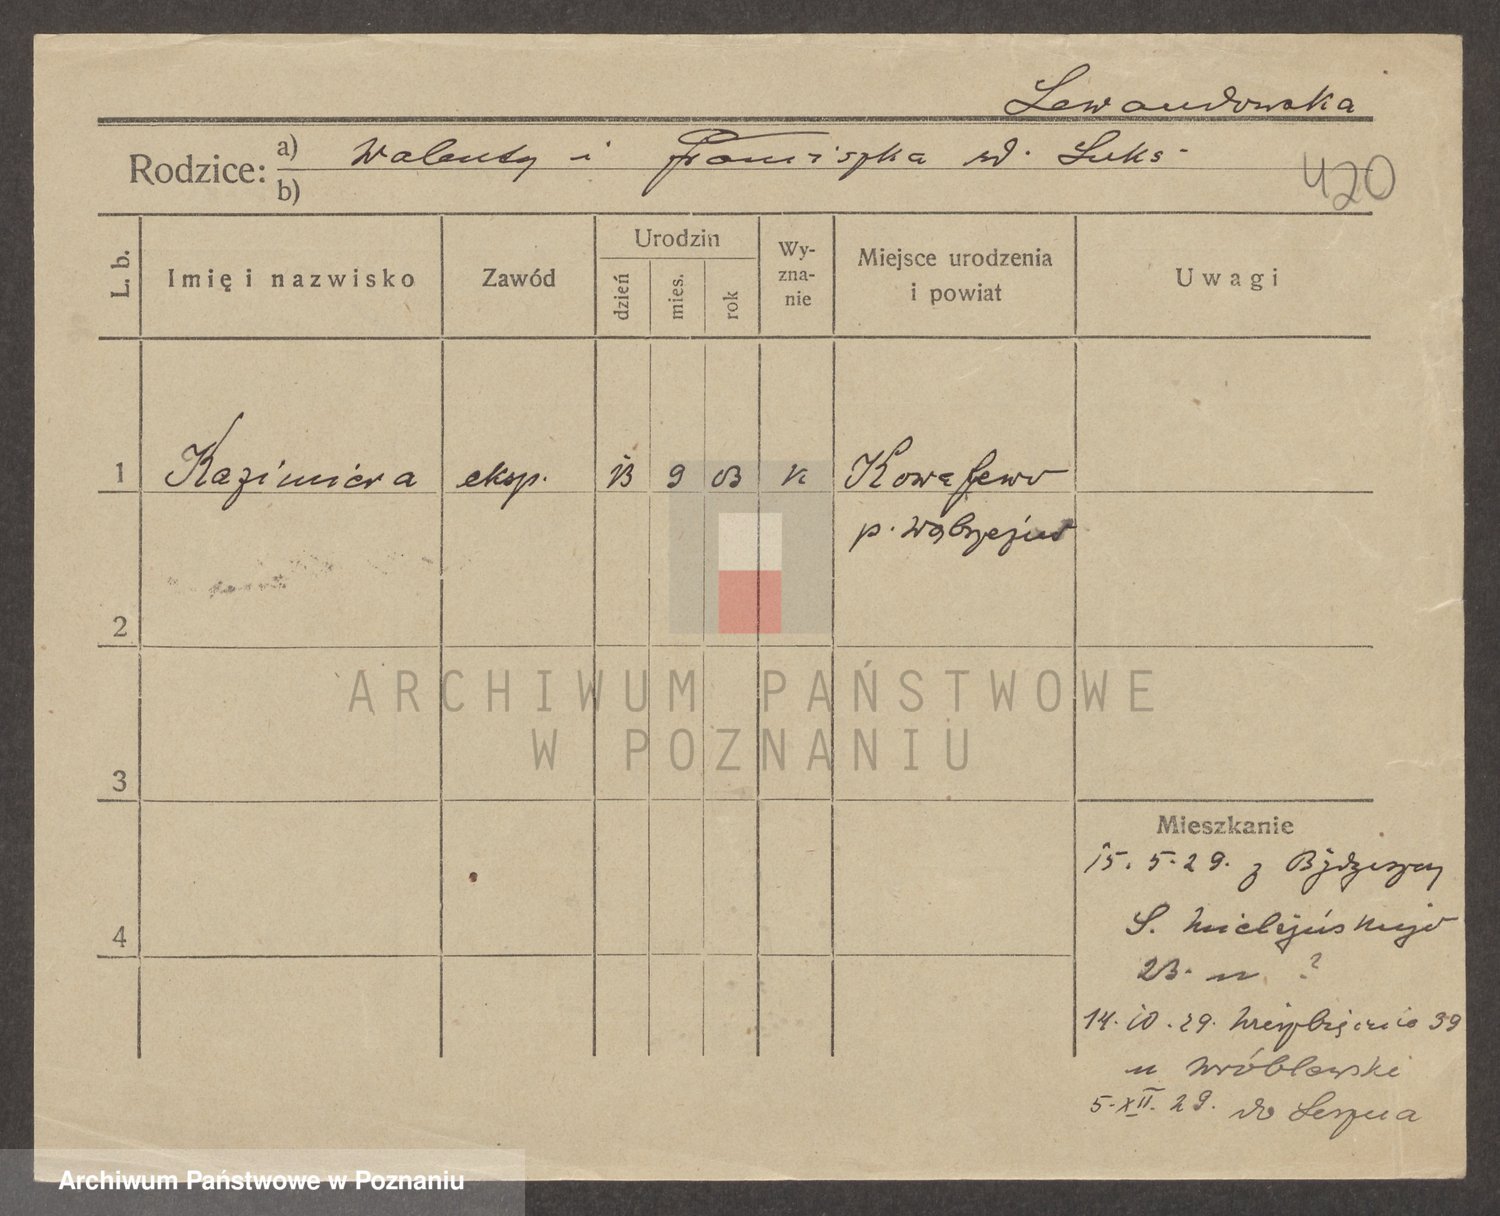 Lewandowska
Rodzice: a) Walenty i Franciszka rd. Luks.
b)
420
L. b.
Imię i nazwisko
Zawód
Urodzin
dzień
mies.
rok
Wy-
zna-
nie
Miejsce urodzenia
i powiat
Uwagi
1 Kazimiera eksp. 13 9 03 k Kowalewo
p. Wąbrzeźno
2
3
4
Mieszkanie
15. 5. 29. z Bydgoszczy
S. Mielżyńskiego
23. u ?
14. 10. 29. Wierzbięcice 39
u Wróblewski
5. XII. 29. do Leszna
ARCHIWUM PAŃSTWOWE
W POZNANIU
Archiwum Państwowe w Poznaniu